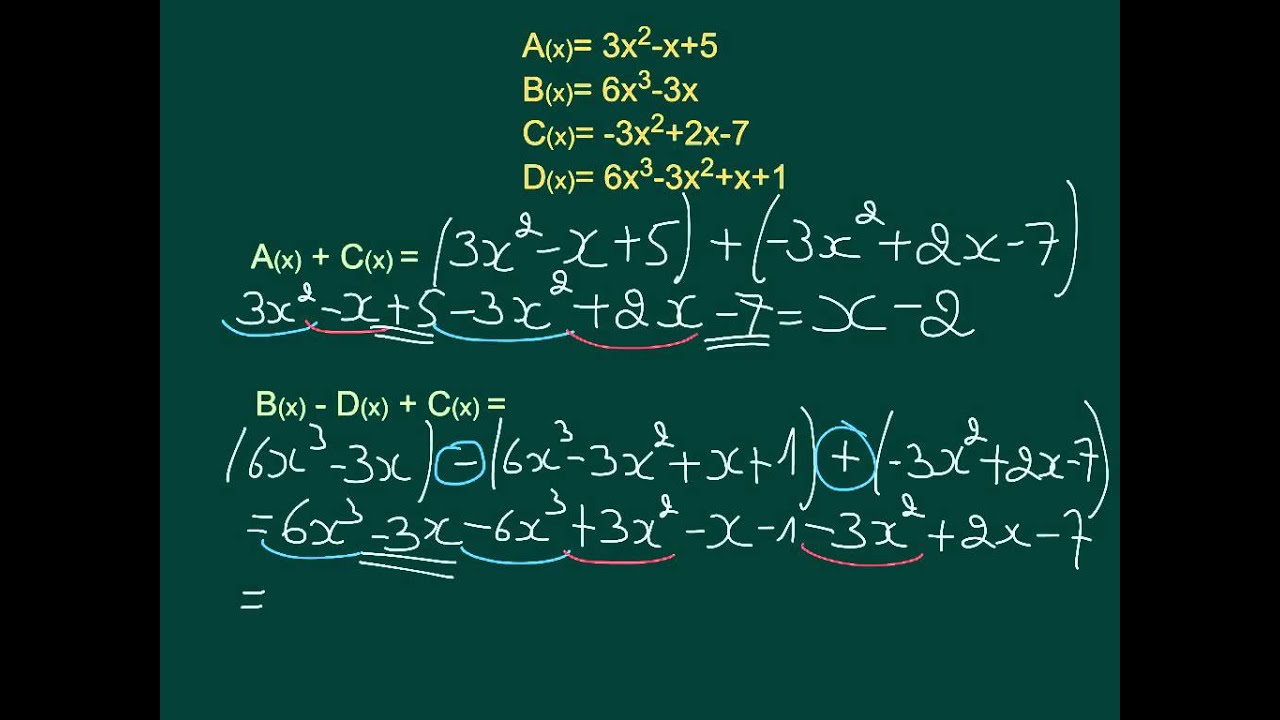 A(x)= 3x²-x+5
B(x)= 6x³-3x
C(x)= -3x²+2x-7
D(x)= 6x³-3x²+x+1
A(x) + C(x) = (3x²-x+5)+(-3x²+2x-7)
3x²-x+5-3x²+2x-7=x-2
B(x) - D(x) + C(x) =
(6x³-3x)-(6x³-3x²+x+1)+(-3x²+2x-7)
=6x³-3x-6x³+3x²-x-1-3x²+2x-7
=